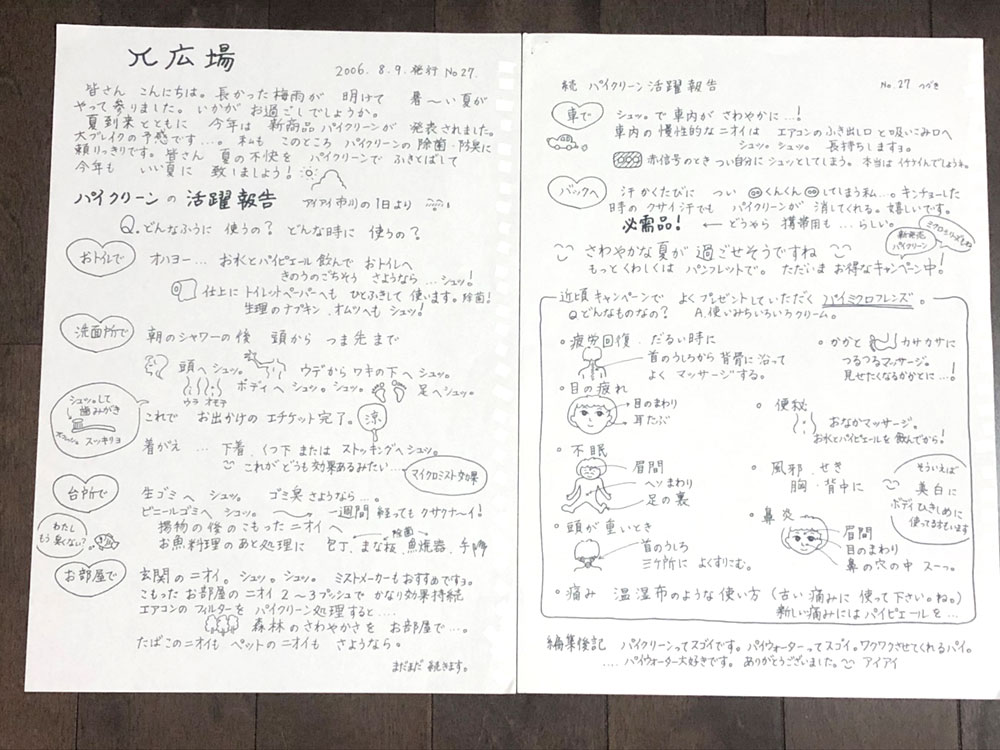 π広場
2006.8.9.発行 No27.
皆さん こんにちは。長かった梅雨が 明けて 暑〜い夏が
やって参りました。いかがお過ごしでしょうか。
夏到来とともに 今年は 新商品パイクリーンが 発表されました。
大ブレイクの予感です…。私も このところ パイクリーンの除菌・防臭に
頼りっきりです。皆さん 夏の不快を パイクリーンで ふきとばして
今年も いい夏に 致しましょう!
パイクリーンの活躍報告 アイアイ市川の1日より
Q.どんなふうに使うの? どんな時に使うの?
おトイレで オハヨー… お水とパイピエール飲んで おトイレへ
きのうのごちそう さようなら …シュッ!
仕上に トイレットペーパーへも ひとふきして 使います。除菌!
生理のナプキン、オムツへも シュッ!
洗面所で 朝のシャワーの後 頭から つま先まで
頭へシュッ。 ウデから ワキの下へシュッ。
ウラ オモテ ボディへ シュッ。シュッ。 足へシュッ。
シュッ。して
歯みがき
スッキリヨ
これで お出かけの エチケット完了。 涼
着がえ … 下着、くつ下 または ストッキングへシュッ。
これが どうも効果あるみたい… マイクロミスト効果
台所で 生ゴミへ シュッ。 ゴミ臭 さようなら …。
ビニールゴミへ シュッ。 一週間 経っても クサクナーイ!
揚物の後のこもったニオイへ
わたし
もう臭くない?
除菌
お魚料理のあと処理に 包丁、まな板、魚焼器、手
お部屋で 玄関のニオイ。シュッ。シュッ。 ミストメーカーもおすすめですヨ。
こもった お部屋のニオイ 2〜3プッシュで かなり効果持続
エアコンの フィルターを パイクリーン処理すると…
森林の さわやかさを お部屋で …。
たばこのニオイも ペットのニオイも さようなら。
まだまだ 続きます。
続 パイクリーン活躍報告 No.27 つづき
車で シュッ。で 車内が さわやかに …!
車内の 慢性的なニオイは エアコンの ふき出し口 と 吸いこみ口へ
シュッ。シュッ。 長持ちしますヨ。
赤信号のとき つい自分に シュッとしてしまう。本当は イケナイんでしょうネ。
バックへ 汗かくたびに つい くんくん してしまう私…。キンチョーした
時の クサイ汗でも パイクリーンが 消してくれる。嬉しいです。
必需品! ← どうやら 携帯用も … らしい。
ミクロシリーズもね
新発売
パイクリーン
さわやかな夏が 過ごせそうですね
もっとくわしくは パンフレットで。 ただいま お得なキャンペーン中!
近頃 キャンペーンで よくプレゼントしていただく パイミクロフレンズ。
Q.どんなものなの? A.使いみちいろいろクリーム。
・疲労回復・だるい時に
首のうしろから 背骨に沿って
よく マッサージする。
・かかと カサカサに
つるつるマッサージ。
見せたくなるかかとに …!
・目の疲れ
目のまわり
耳たぶ
・便秘
おなかマッサージ。
お水とパイピエールを 飲んでから!
・不眠
眉間
ヘソまわり
足の裏
・風邪、せき
胸、背中に
そういえば
美白に
ボディひきしめに
使ってる方もいます
・頭が重いとき
首のうしろ
三ケ所に よくすりこむ。
・鼻炎
眉間
目のまわり
鼻の穴の中 スーっ。
・痛み 温湿布のような使い方 (古い痛みに使って下さい。ね。)
新しい痛みには パイピエールを …
編集後記 パイクリーンってスゴイです。パイウォーターってスゴイ。ワクワクさせてくれるパイ。
…. パイウォーター大好きです。 ありがとうございました。 アイアイ